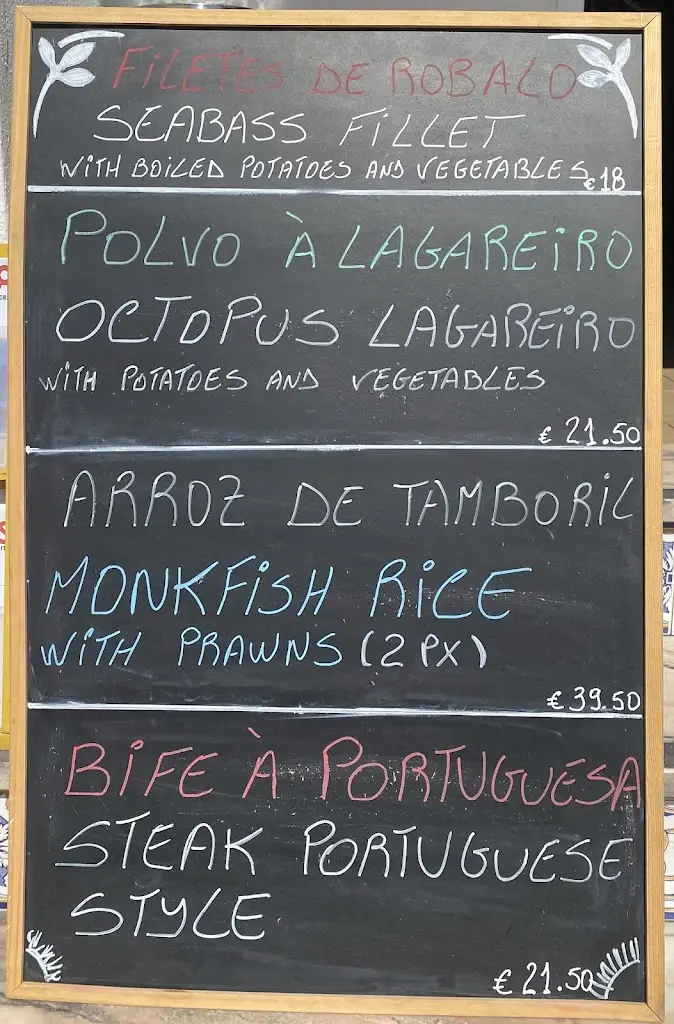 FILETES DE ROBALO
SEABASS FILLET
WITH BOILED POTATOES AND VEGETABLES
€ 18
POLVO À LAGAREIRO
OCTOPUS LAGAREIRO
WITH POTATOES AND VEGETABLES
€ 21.50
ARROZ DE TAMBORIL
MONKFISH RICE
WITH PRAWNS (2 PX)
€ 39.50
BIFE À PORTUGUESA
STEAK PORTUGUESE
STYLE
€ 21.50